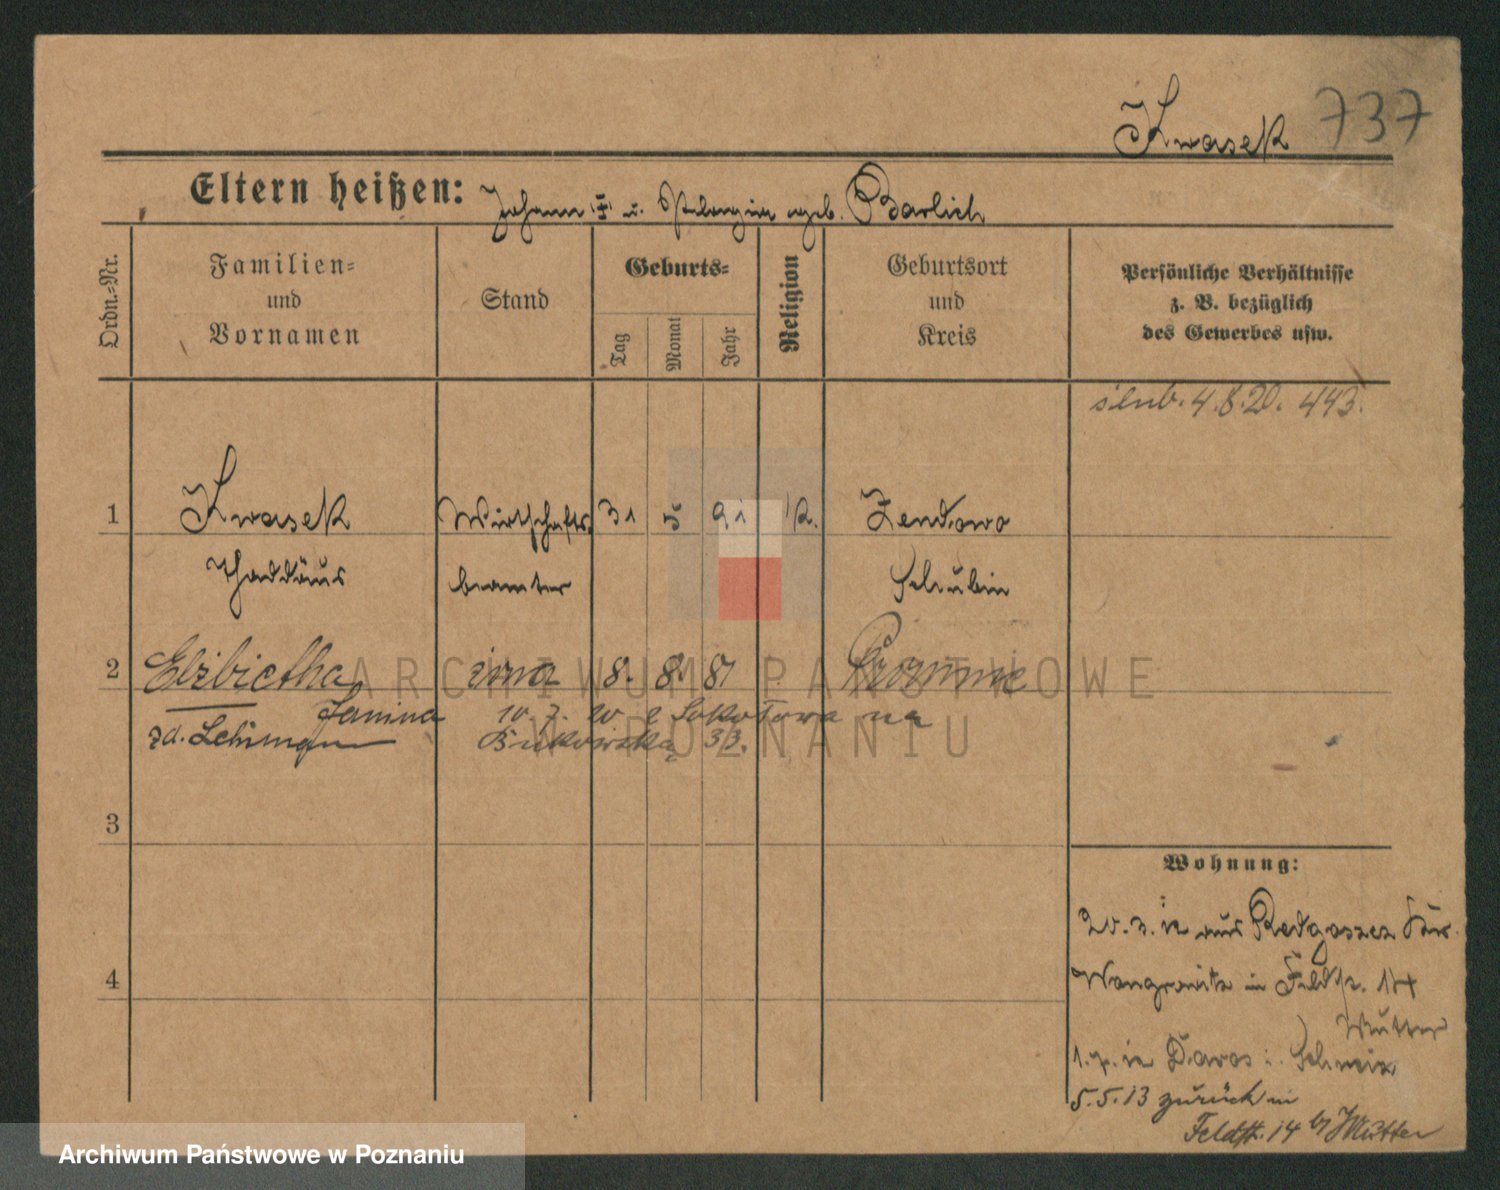 Kwasek 737
Eltern heißen: Johann † u. Pelagia geb. Barlich
Ordn.-Nr.
Familien= und Vornamen
Stand
Geburts=
Tag Monat Jahr
Religion
Geburtsort und Kreis
Persönliche Verhältnisse
z. B. bezüglich
des Gewerbes usw.
ślub. 4.8.20. 443.
1 Kwasek Wirtschafts 31 5. 91 k. Zendowo
Thaddäus beamter Schubin
2 Elżbietha żona 8. 8. 81
Janina 10. 7. 20 Sokołowa na
zd. Lehmann Bukowską 33.
3
4
Wohnung:
aus Redgoszcz Kr.
Wongrowitz in Feldstr. 14
Mutter
1.7. in Davos i. Schweiz
5.5.13 zurück in
Feldstr. 14 b/ Mutter
ARCHIWUM PAŃSTWOWE
W POZNANIU
Archiwum Państwowe w Poznaniu